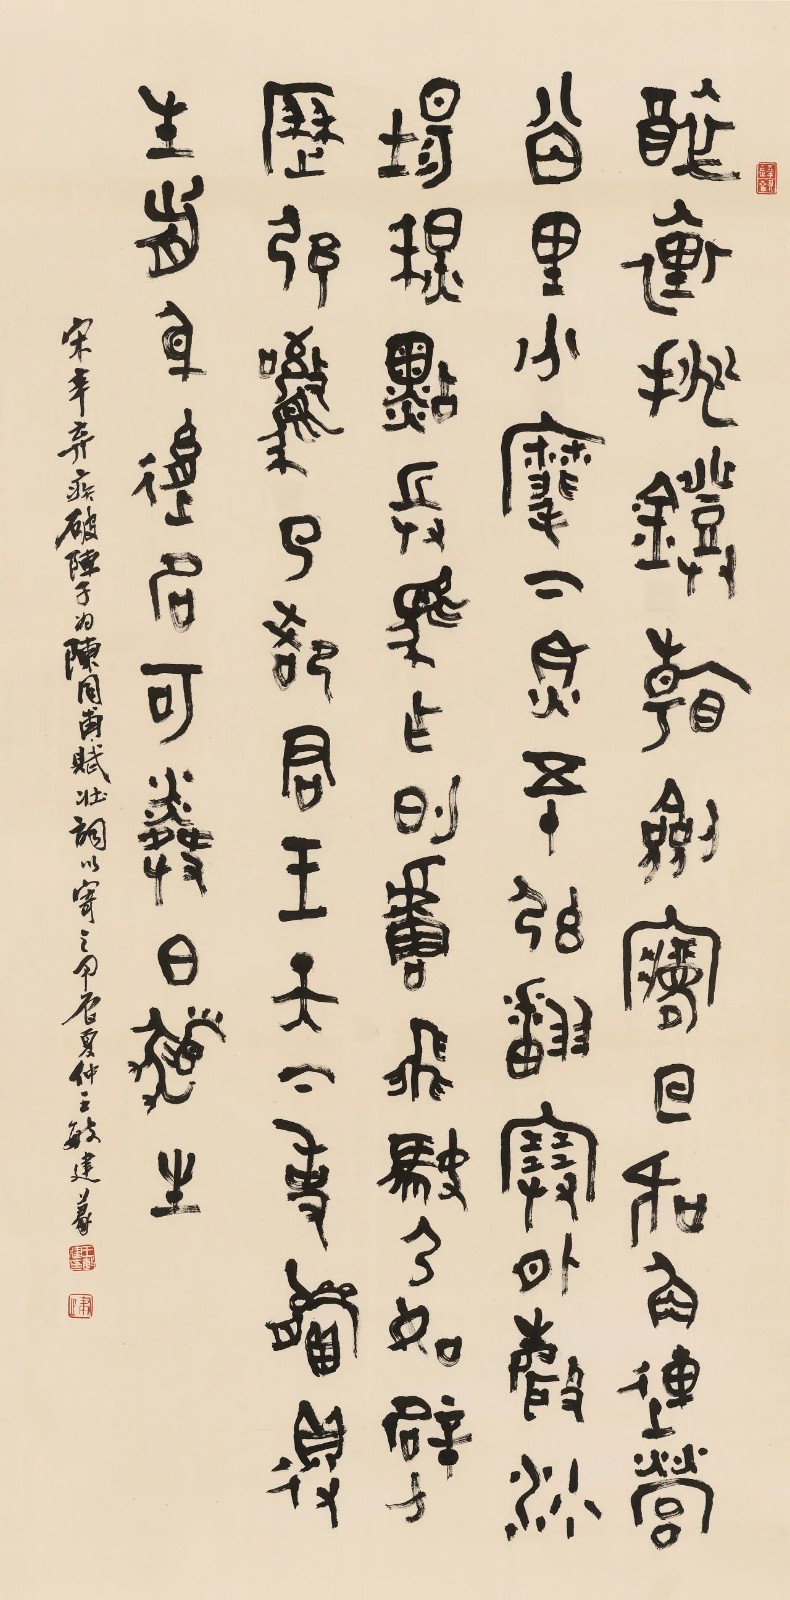 醉里挑鐙看劍夢回吹角連營
八百里分麾下炙五十弦翻塞外聲沙
場秋點兵馬作的盧飛快弓如霹
靂弦驚了卻君王天下事贏得
生前身後名可憐白髮生
宋辛弃疾破陣子为陳同甫賦壯詞以寄之甲辰夏仲王敏建篆